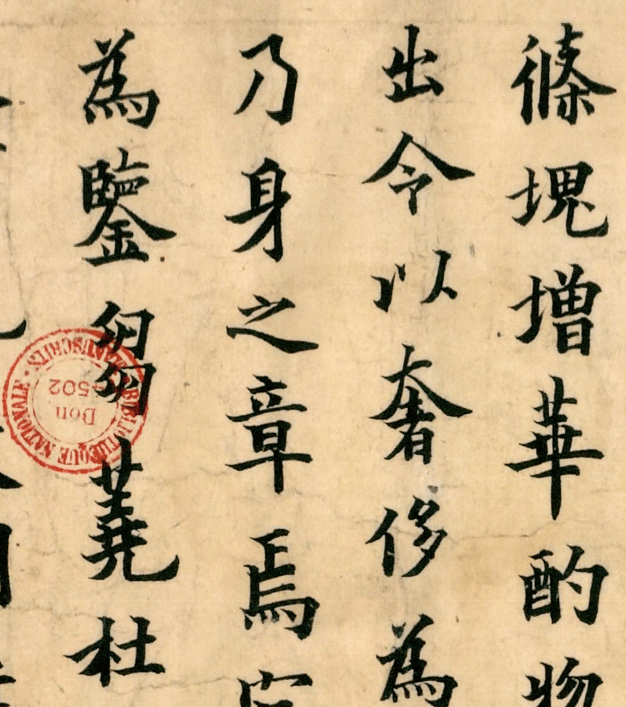 條塊增華酌物
出令以奢侈為
乃身之章焉
為鑒芻蕘杜
BIBLIOTHEQUE NATIONALE · MANUSCRITS ·
Don
4502